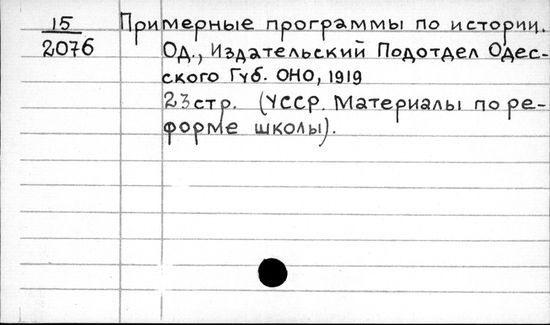 15
2076
Примерные программы по истории.
Од., Издательский Подотдел Одес-
ского Губ. ОНО, 1919
23 стр. (УССР. Материалы по ре-
форме школы).